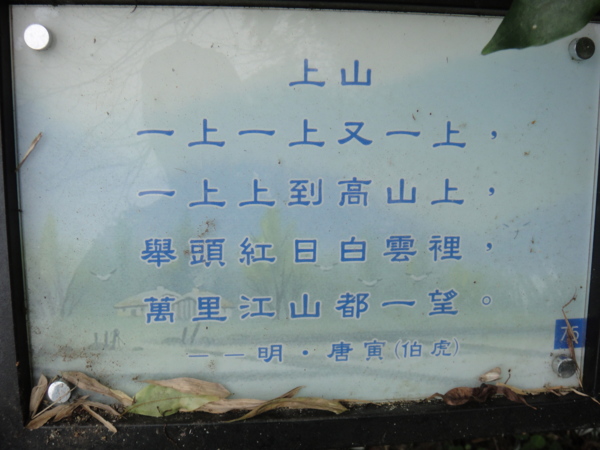 上山
一上一上又一上，
一上上到高山上，
舉頭紅日白雲裡，
萬里江山都一望。
——明·唐寅(伯虎)
75